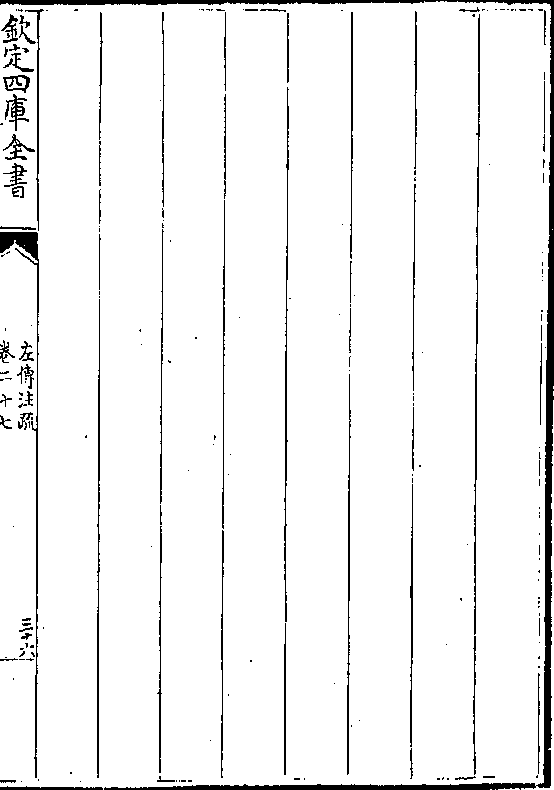 欽定四庫全書
左傳注疏
卷二十七
三十六